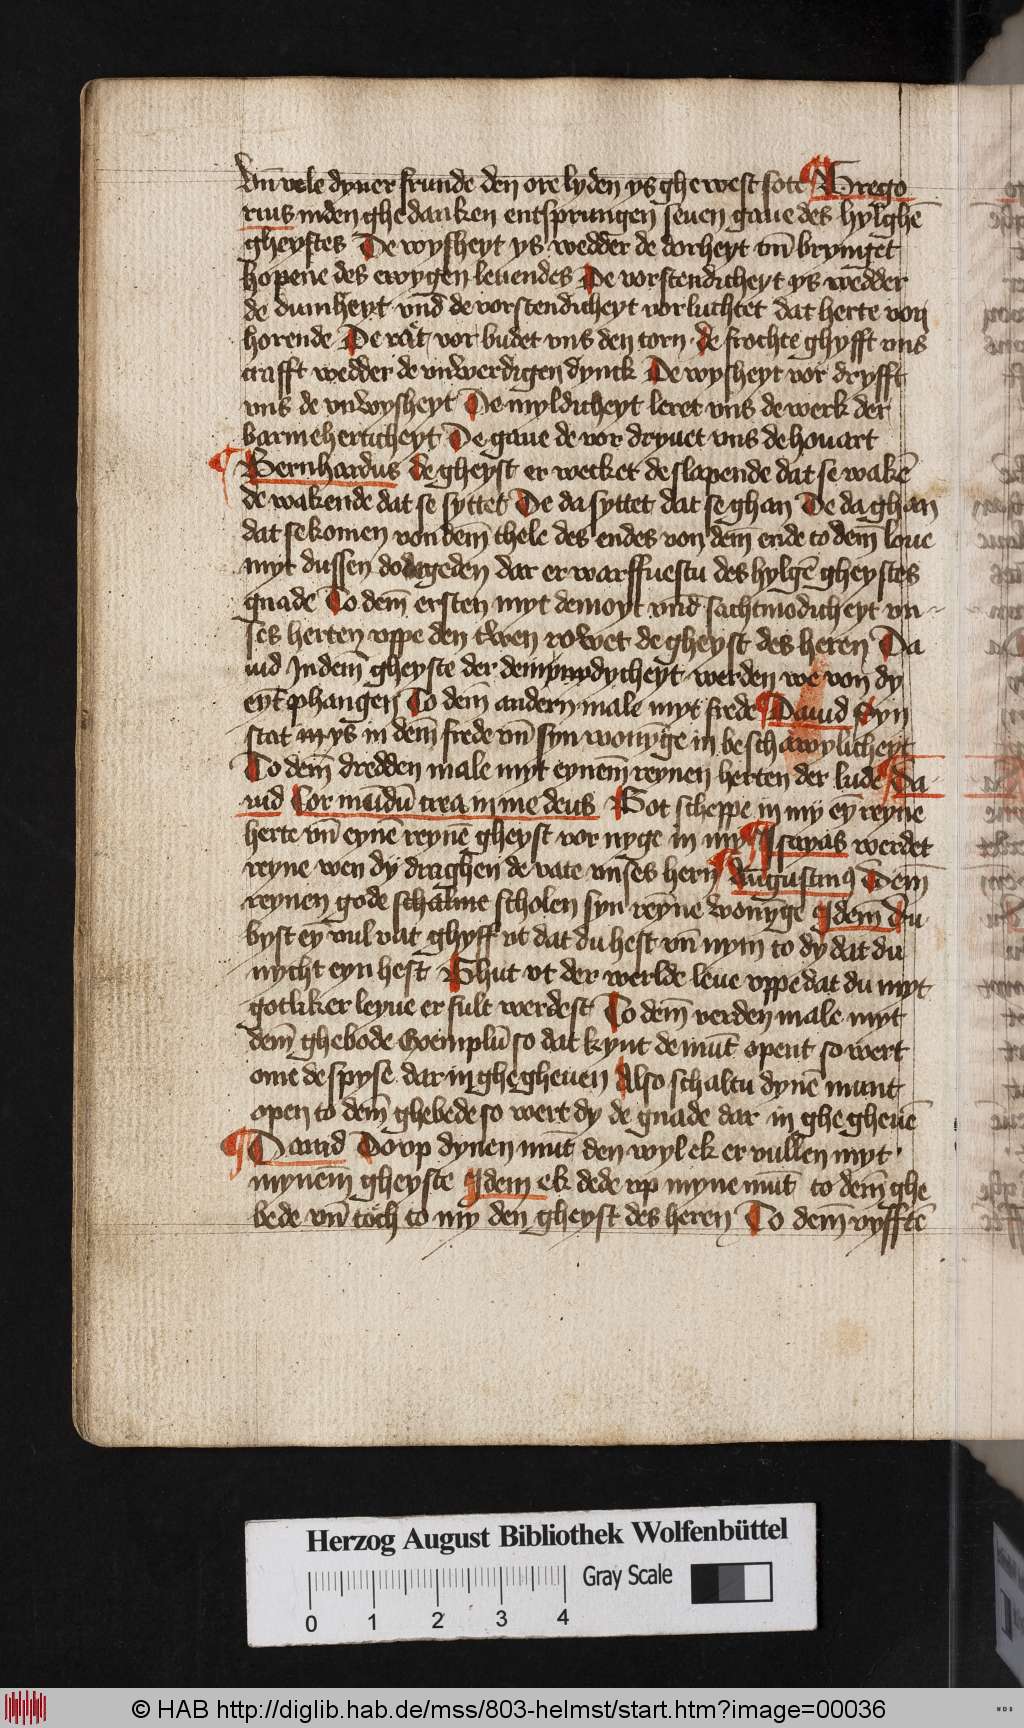 vn̄ vele dyner frunde den ore lyden ys ghewest sote Grego
rius inden ghedanken entsprungen seuen gaue des hylghē
gheystes De wysheyt ys wedder de dorheyt vn̄ brynget
hopene des ewygen leuendes De vorstendicheyt ys wedder
de dumheyt vnd de vorstendicheyt vorluchtet dat herte von
horende De rat vor budet vns den torn de frochte ghyfft vns
crafft wedder de vnwerdigen dynck De wysheyt vor dryfft
vns de vnwysheyt De myldicheyt leret vns de werk der
barmeherticheyt De gaue de vor dryuet vns de houart
Bernhardus de gheyst er wecket de slapende dat se wakē
de wakende dat se syttet De da syttet dat se ghan De da ghan
dat se komen von dem̄ thele des endes von dem ende to dem̄ loue
myt dussen dogeden dar er warffuestu des hylgē gheystes
gnade To dem̄ ersten myt demoyt vnd sachtmodicheyt vn
ses herten vppe den twen rowet de gheyst des heren Da
uid In dem̄ gheyste der demymodycheyt werden we von dy
eyt phangen To dem̄ andern male myt frede Dauid Syn
stat ys in dem̄ frede vn̄ syn wonȳge in beschawylicheyt
To dem̄ dredden male myt eynem̄ reynen herten der lude Da
uid Cor mūdū crea in me deus Got scheppe in my eȳ reyne
herte vn̄ eynē reynē gheyst vor nyge in my Isayas werdet
reyne wen dy draghen de vate vnses hern Augustinꝯ Dem̄
reynen gode schalme scholen syn reyne wonȳge Idem̄ Du
byst eȳ vul vat ghyff vt dat du hest vn̄ nym to dy dat du
nycht eyn hest Ghut vt der werlde leue vppe dat du myt
gotliker leyue er fult werdest To dem̄ verden male myt
dem̄ ghebode Exemplū so dat kynt de mūt opent so wert
ome de spyse dar in ghegheuen Also schaltu dynē munt
open to dem̄ ghebede so wert dy de gnade dar in ghegheuē
Dauid Do vp dynen mūt den wyl ek er vullen myt
mynem̄ gheyste Idem ek dede vp myne mūt to dem̄ ghe
bede vn̄ toch to my den gheyst des heren To dem̄ vyfftē
Herzog August Bibliothek Wolfenbüttel
Gray Scale
0 1 2 3 4
© HAB http://diglib.hab.de/mss/803-helmst/start.htm?image=00036